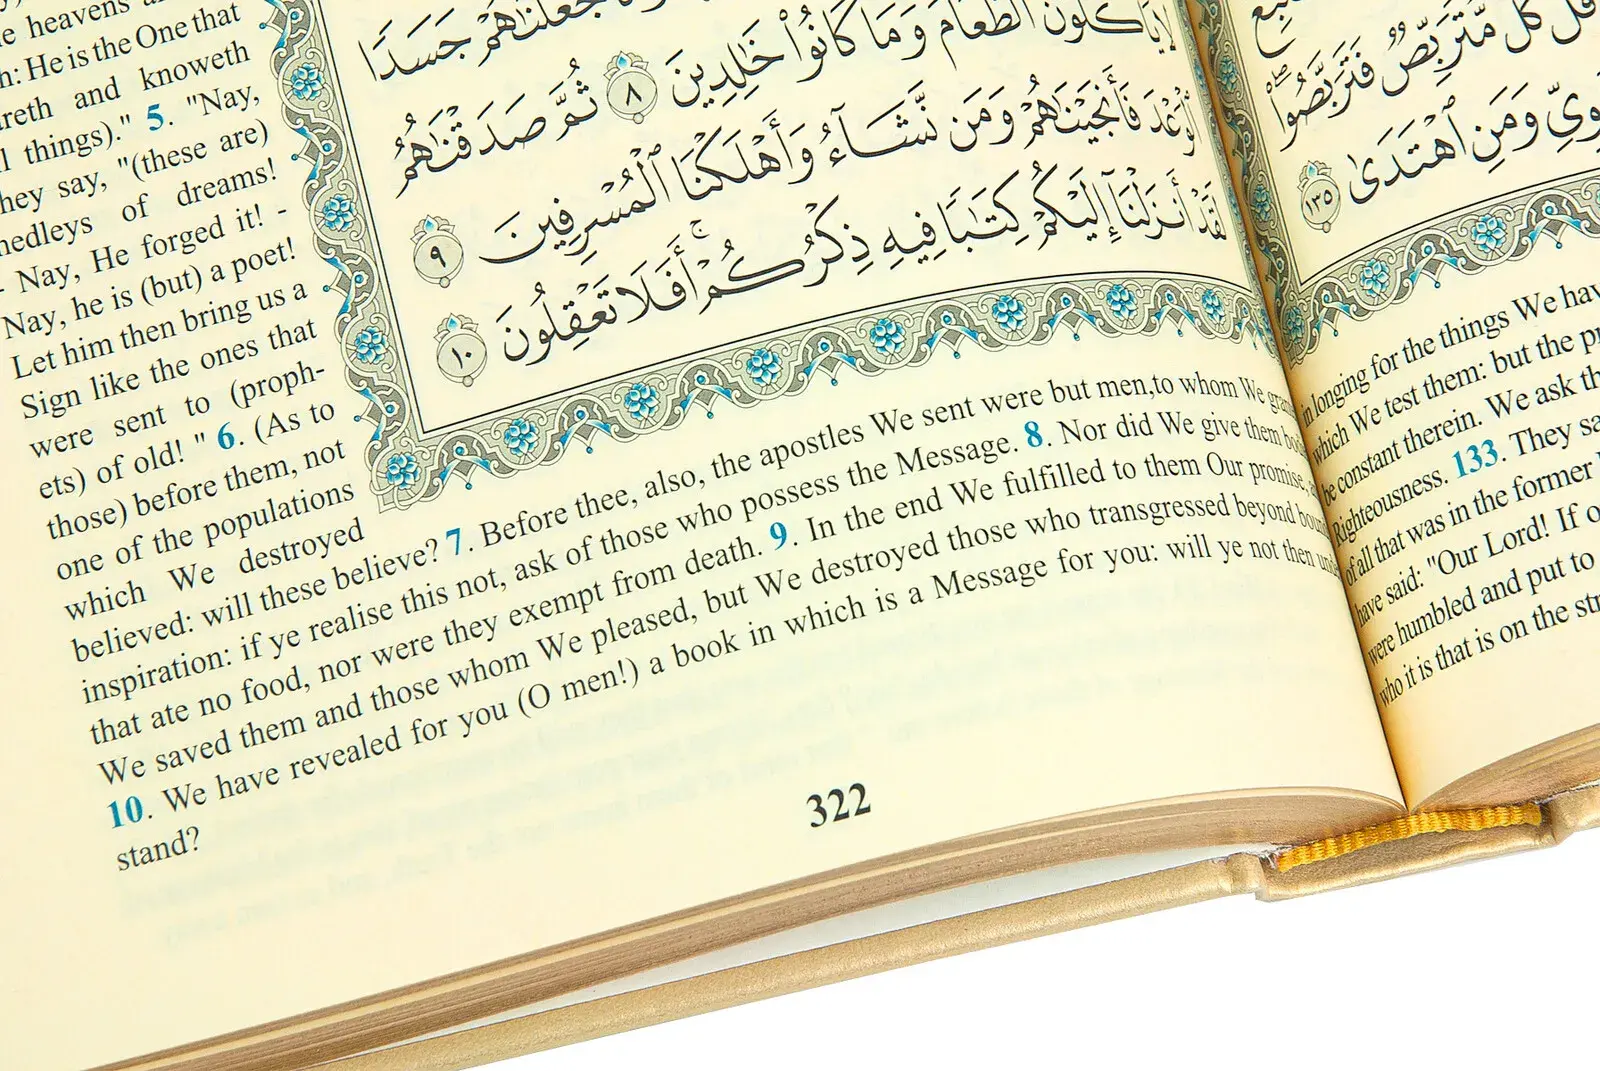 heavens
h: He is the One that
reth and knoweth
l things)." 5. "Nay,
hey say, "(these are)
nedleys of dreams!
- Nay, He forged it! -
Nay, he is (but) a poet!
Let him then bring us a
Sign like the ones that
were sent to (proph-
ets) of old! " 6. (As to
those) before them, not
one of the populations
which We destroyed
believed: will these believe? 7. Before thee, also, the apostles We sent were but men,to whom We gra
inspiration: if ye realise this not, ask of those who possess the Message. 8. Nor did We give them bod
that ate no food, nor were they exempt from death. 9. In the end We fulfilled to them Our promise,
We saved them and those whom We pleased, but We destroyed those who transgressed beyond boun
10. We have revealed for you (O men!) a book in which is a Message for you: will ye not then unde
stand?
322
جَعَلْنَٰهُمْ جَسَدًا
لَّا يَأْكُلُونَ ٱلطَّعَامَ وَمَا كَانُوا۟ خَٰلِدِينَ ٨ ثُمَّ صَدَقْنَٰهُمُ
ٱلْوَعْدَ فَأَنجَيْنَٰهُمْ وَمَن نَّشَآءُ وَأَهْلَكْنَا ٱلْمُسْرِفِينَ ٩
لَقَدْ أَنزَلْنَآ إِلَيْكُمْ كِتَٰبًا فِيهِ ذِكْرُكُمْ ۚ أَفَلَا تَعْقِلُونَ ١٠
قُلْ كُلٌّ مُّتَرَبِّصٌ فَتَرَبَّصُوا۟
وَمَنِ ٱهْتَدَىٰ ١٣٥
in longing for the things We hav
which We test them: but the pr
be constant therein. We ask th
Righteousness. 133. They sa
of all that was in the former
have said: "Our Lord! If o
were humbled and put to
who it is that is on the str